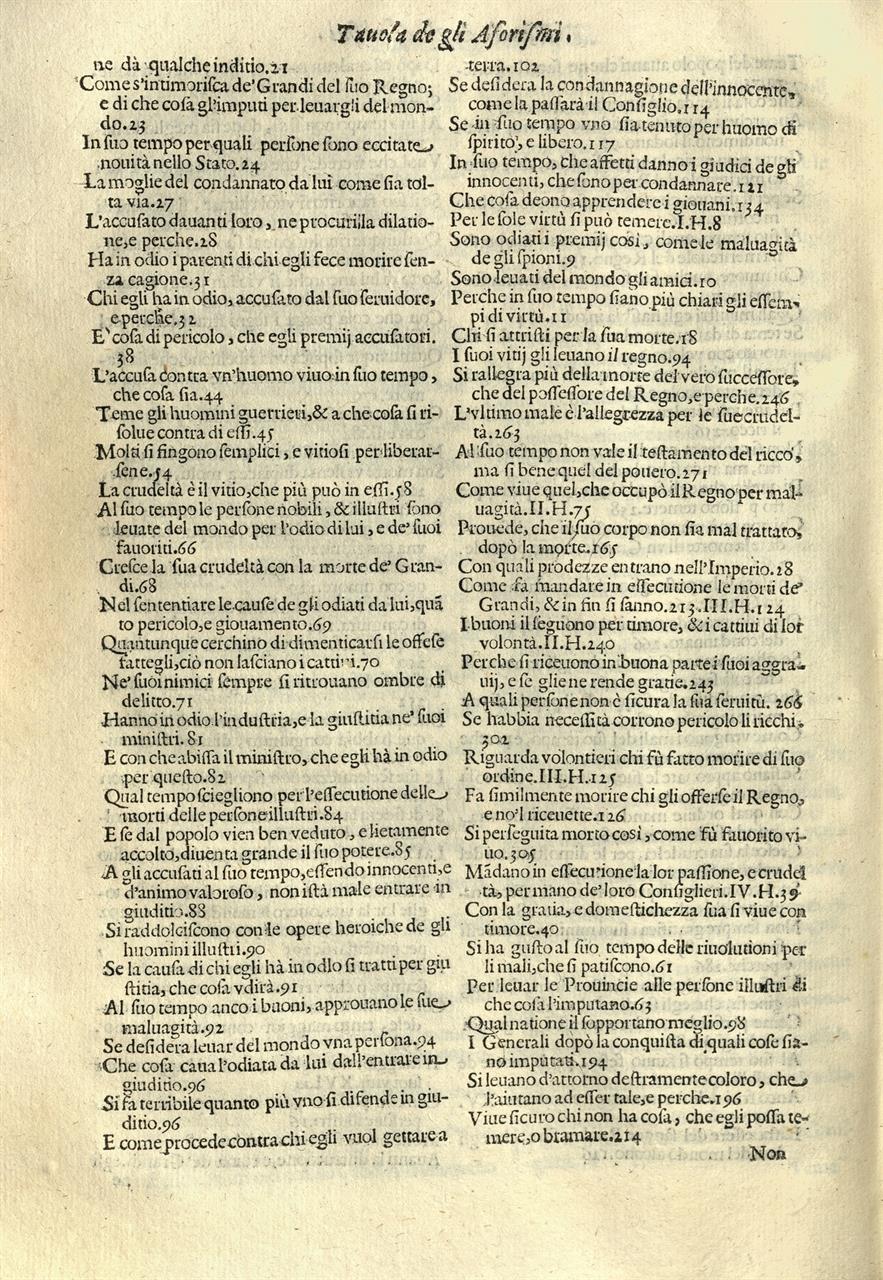 Tauola de gli Aforismi.
ne dà qualche inditio.21
Come s'intimorisca de' Grandi del suo Regno;
e di che cosa gl'imputi per leuargli del mon-
do.23
In suo tempo per quali persone sono eccitate
nouità nello Stato.24
La moglie del condannato da lui come sia tol-
ta via.27
L'accusato dauanti loro, ne procuri la dilatio-
ne, e perche.28
Ha in odio i parenti di chi egli fece morire sen-
za cagione.31
Chi egli ha in odio, accusato dal suo seruidore,
e perche.32
E' cosa di pericolo, che egli premij accusatori.
38
L'accusa contra vn'huomo viuo in suo tempo,
che cosa sia.44
Teme gli huomini guerrieri, & a che cosa si ri-
solue contra di essi.45
Molti si fingono semplici, e vitiosi per liberar-
sene.54
La crudeltà è il vitio, che più può in essi.58
Al suo tempo le persone nobili, & illustri sono
leuate del mondo per l'odio di lui, e de' suoi
fauoriti.66
Cresce la sua crudeltà con la morte de' Gran-
di.68
Nel sententiare le cause de gli odiati da lui, quā
to pericolo, e giouamento.69
Quantunque cerchino di dimenticarsi le offese
fattegli, ciò non lasciano i cattiui.70
Ne' suoi nimici sempre si ritrouano ombre di
delitto.71
Hanno in odio l'industria, e la giustitia ne' suoi
ministri. 81
E con che abissa il ministro, che egli hà in odio
per questo.82
Qual tempo sciegliono per l'essecutione delle
morti delle persone illustri.84
E se dal popolo vien ben veduto, e lietamente
accolto, diuenta grande il suo potere.85
A gli accusati al suo tempo, essendo innocenti, e
d'animo valoroso, non istà male entrare in
giuditio.88
Si raddolciscono con le opere heroiche de gli
huomini illustri.90
Se la causa di chi egli hà in odlo si tratti per giu
stitia, che cosa vdirà.91
Al suo tempo anco i buoni, approuano le sue
maluagità.92
Se desidera leuar del mondo vna persona.94
Che cosa caua l'odiata da lui dall'entrare in
giuditio.96
Si fa terribile quanto più vno si difende in giu-
ditio.96
E come procede contra chi egli vuol gettare a
terra.102
Se desidera la condannagione dell'innocente,
come la passarà il Consiglio.114
Se in suo tempo vno sia tenuto per huomo di
spirito, e libero.117
In suo tempo, che affetti danno i giudici de gli
innocenti, che sono per condannare.121
Che cosa deono apprendere i giouani.134
Per le sole virtù si può temere.I.H.8
Sono odiati i premij così, come le maluagità
de gli spioni.9
Sono leuati del mondo gli amici.10
Perche in suo tempo siano più chiari gli essem-
pi di virtù.11
Chi si attristi per la sua morte.18
I suoi vitij gli leuano il regno.94
Si rallegra più della morte del vero successore,
che del possessore del Regno, e perche.246
L'vltimo male è l'allegrezza per le sue crudel-
tà.263
Al suo tempo non vale il testamento del ricco,
ma sì bene quel del pouero.271
Come viue quel, che occupò il Regno per mal-
uagità.II.H.75
Prouede, che il suo corpo non sia mal trattato,
dopò la morte.165
Con quali prodezze entrano nell'Imperio.28
Come fa mandare in essecutione le morti de'
Grandi, & in fin si sanno.213.III.H.124
I buoni il seguono per timore, & i cattiui di lor
volontà.II.H.240
Perche si riceuono in buona parte i suoi aggra-
uij, e se gliene rende gratie.243
A quali persone non è sicura la sua seruitù. 266
Se habbia necessità corrono pericolo li ricchi.
302
Riguarda volontieri chi fù fatto morire di suo
ordine.III.H.125
Fa similmente morire chi gli offerse il Regno,
e no'l riceuette.126
Si perseguita morto così, come fù fauorito vi-
uo.305
Mādano in essecutione la lor passione, e crudel
tà, per mano de' loro Consiglieri.IV.H.39
Con la gratia, e domestichezza sua si viue con
timore.40
Si ha gusto al suo tempo delle riuolutioni per
li mali, che si patiscono.61
Per leuar le Prouincie alle persone illustri di
che cosa l'imputano.63
Qual natione il sopportano meglio.98
I Generali dopò la conquista di quali cose sia-
no imputati.194
Si leuano d'attorno destramente coloro, che
l'aiutano ad esser tale, e perche.196
Viue sicuro chi non ha cosa, che egli possa te-
mere, o bramare.214
Non